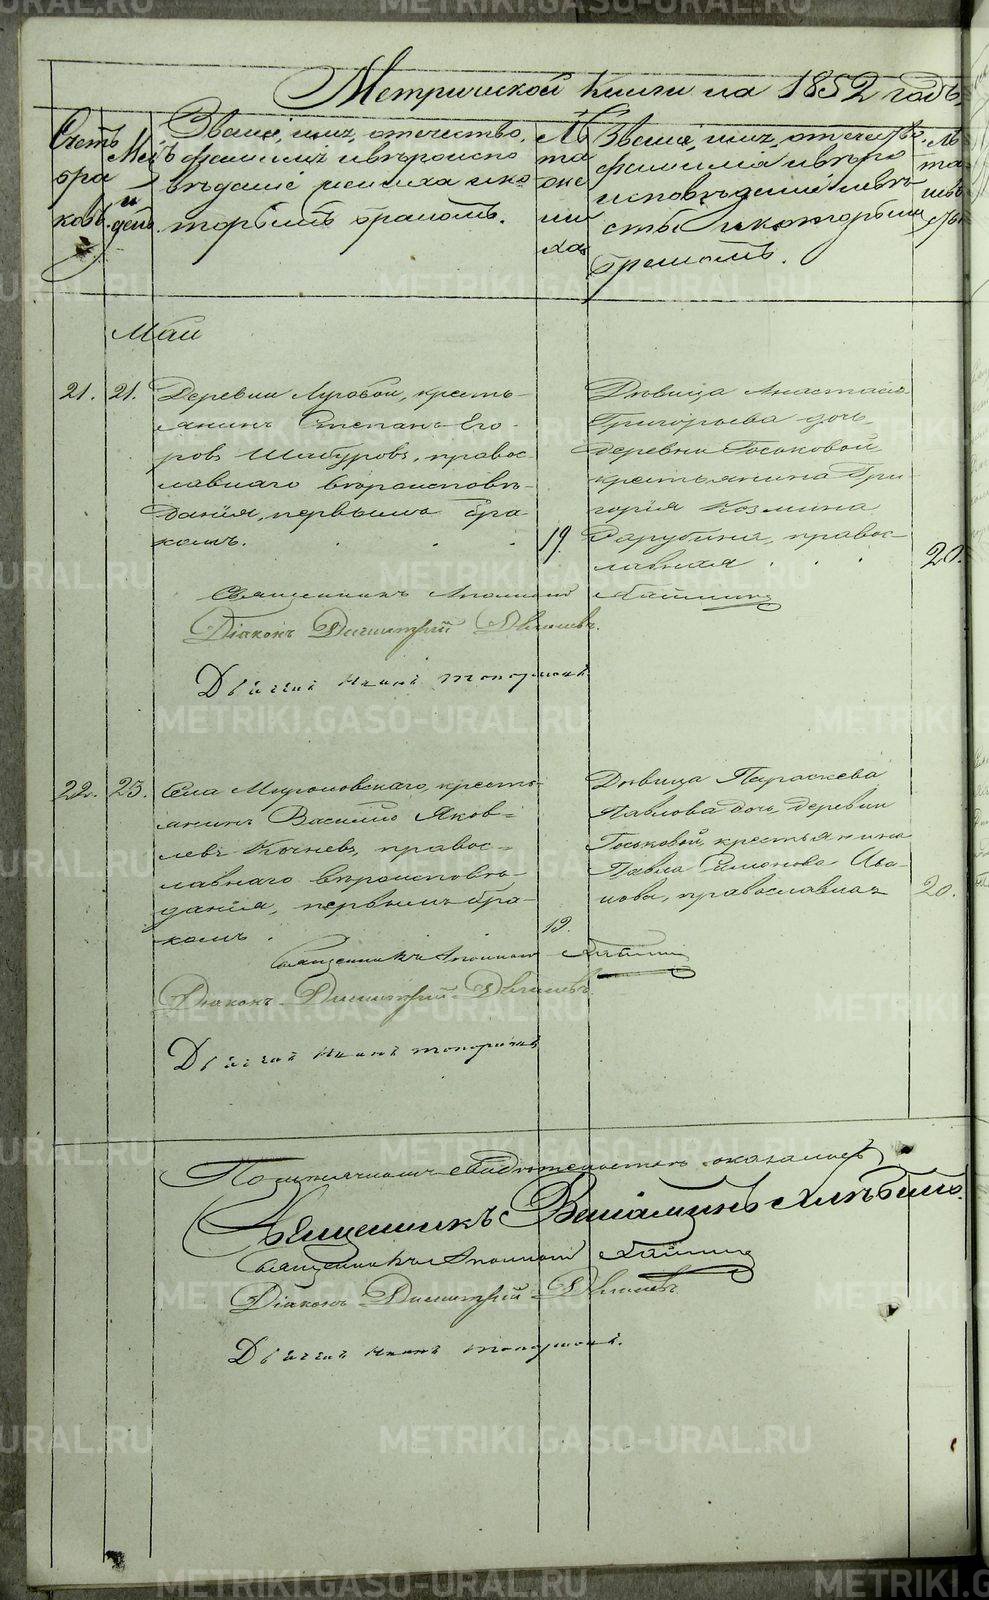 METRIKI.GASO-URAL.RU
Метрической книги на 1852 годъ,
Счетъ браковъ.
Мсцъ и день.
Званіе, имя, отечество,
фамилія и вѣроиспо
вѣданіе жениха и ко
торымъ бракомъ.
Лѣта жениха
Званіе, имя, отечество,
фамилія и вѣро
исповѣданіе невѣ
сты и которымъ
бракомъ.
Лѣта невѣсты
Маіи
21. 21.
Деревни Луговой, кресть-
янинъ Степанъ Его-
ровъ Шабуровъ, правос-
лавнаго вѣроисповѣ-
данія, первымъ бра-
комъ. 19.
Дѣвица Анастасія
Григорьева дочь,
деревни Госьковой
крестьянина Гри
горія Козмина
православная 20.
Священникъ
Діаконъ Димитрій
Дьячекъ Иванъ Топорковъ
22. 25.
Села Мироновскаго, кресть-
янинъ Василій Яков-
левъ Кочневъ, правос-
лавнаго вѣроисповѣ-
данія, первымъ бра-
комъ. 19.
Дѣвица Параскева
Павлова дочь, деревни
Госьковой, крестьянина
Павла Симонова Ива-
нова, православная 20.
Священникъ
Діаконъ Димитрій
Дьячекъ Иванъ Топорковъ
свидѣтельствѣ оказалось
Священникъ Веніаминъ Хлѣбинъ.
Священникъ
Діаконъ Димитрій
Дьячекъ Иванъ Топорковъ.